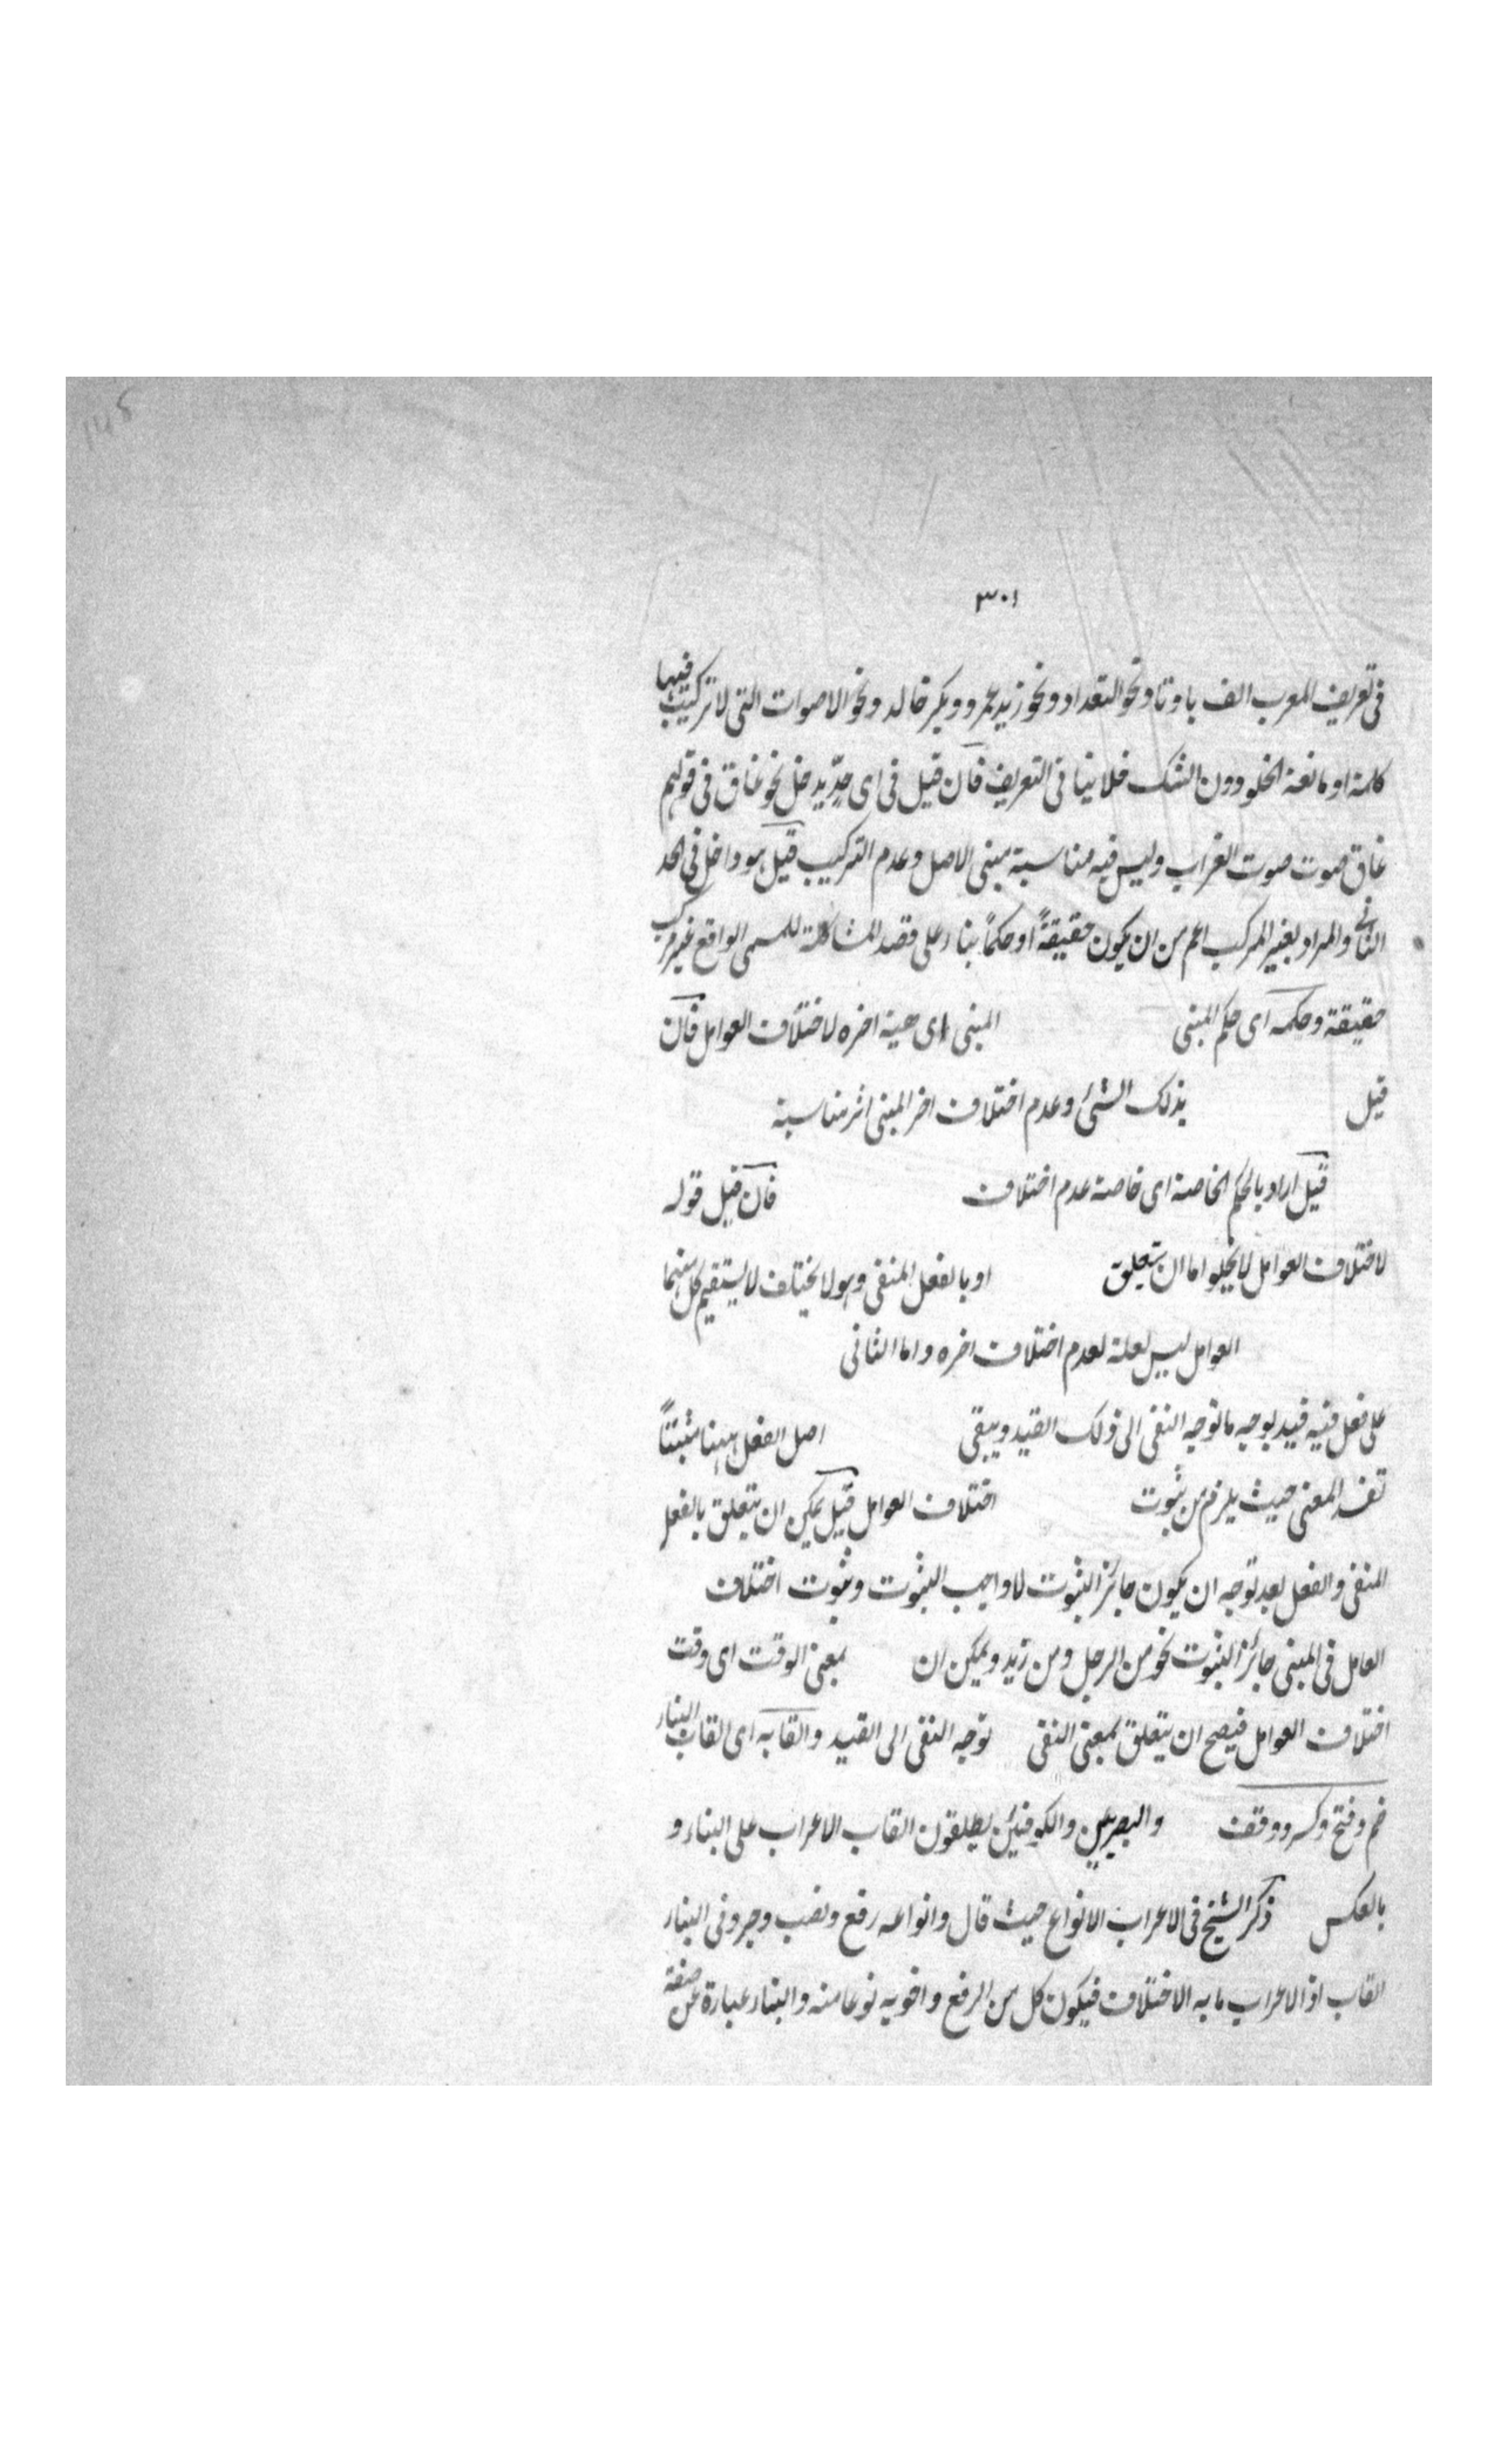 ٣٠١
فى تعريف المعرب الف با وتا ونحو التعداد ونحو زيد عمرو وبكر خالد ونحو الاصوات التى لا تركيب فيها
كلمة او مانعة الخلو دون الشك فلا ينافى التعريف فان قيل فى اى حدّ يدخل نحو غاق فى قولهم
غاق صوت صوت الغراب وليس فيه مناسبة مبنى الاصل وعدم التركيب قيل هو داخل فى الحد
الثانى والمراد بغير المركب اعم من ان يكون حقيقةً او حكماً بناء على قصد المشاكلة للمسمى الواقع غير مركب
حقيقة وحكمه اى حكم المبنى المبنى اى هيئة اخره لاختلاف العوامل فان
قيل بذلك الشئ وعدم اختلاف اخر المبنى اثر مناسبة
قيل اراد بالحكم الخاصة اى خاصة عدم اختلاف فان قيل قوله
لاختلاف العوامل لا يخلو اما ان يتعلق او بالفعل المنفى وهو لا يختلف لا يستقيم كل منهما
العوامل ليس لعلة لعدم اختلاف اخره واما الثانى
على فعل فيه قيد بوجه ما توجه النفى الى ذلك القيد ويبقى اصل الفعل ههنا مثبتاً
تفسد المعنى حيث يلزم من ثبوت اختلاف العوامل قيل يمكن ان يتعلق بالفعل
المنفى والفعل بعد توجه ان يكون جائز الثبوت لا واجب الثبوت وثبوت اختلاف
العامل فى المبنى جائز الثبوت نحو من الرجل ومن زيد ويمكن ان بمعنى الوقت اى وقت
اختلاف العوامل فيصح ان يتعلق بمعنى النفى توجه النفى الى القيد والقابه اى القاب البناء
ضم وفتح وكسر ووقف والبصريين والكوفيين يطلقون القاب الاعراب على البناء و
بالعكس ذكر الشيخ فى الاعراب الانواع حيث قال وانواعه رفع ونصب وجر وفى البناء
القاب اذ الاعراب ما به الاختلاف فيكون كل من الرفع واخويه نوعا منه والبناء عبارة عن صفة